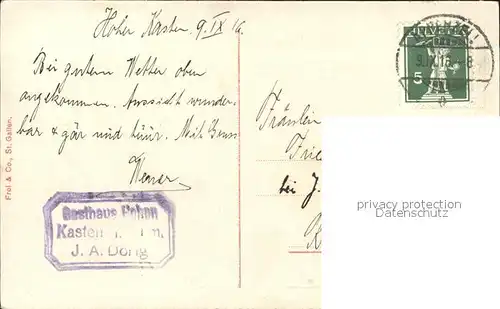 Hoher Kasten 9. IX 16.
Bei gutem Wetter oben
angekommen. Aussicht wunder-
bar & gär und tüür. Mit Gruss
Werner
Fräulein
Frie
bei J.
Gasthaus Hohen
Kasten
J. A. Dörig
Frei & Co., St. Gallen.
HELVETIA
5
9.IX.16.-8
privacy protection
Datenschutz